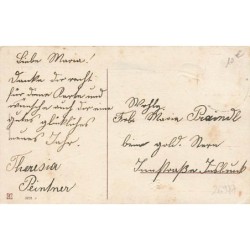 Liebe Maria!
Danke dir recht
für deine Karte und
wünsche auch dir ein
gutes glückliches
neues Jahr.
Theresia
Peintner
Wohlg.
Frl. Maria Praindl
beim gold. Stern
Innstraße, Insbruck